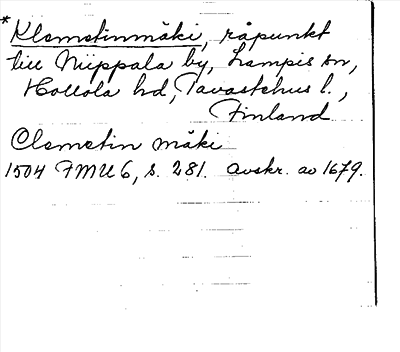 *Klemetinmäki, råpunkt
till Niippala by, Lampis sn,
Hollola hd, Tavastehus l.,
Finland
Clemetin mäki
1504 FMU 6, s. 281. Avskr. av 1679.